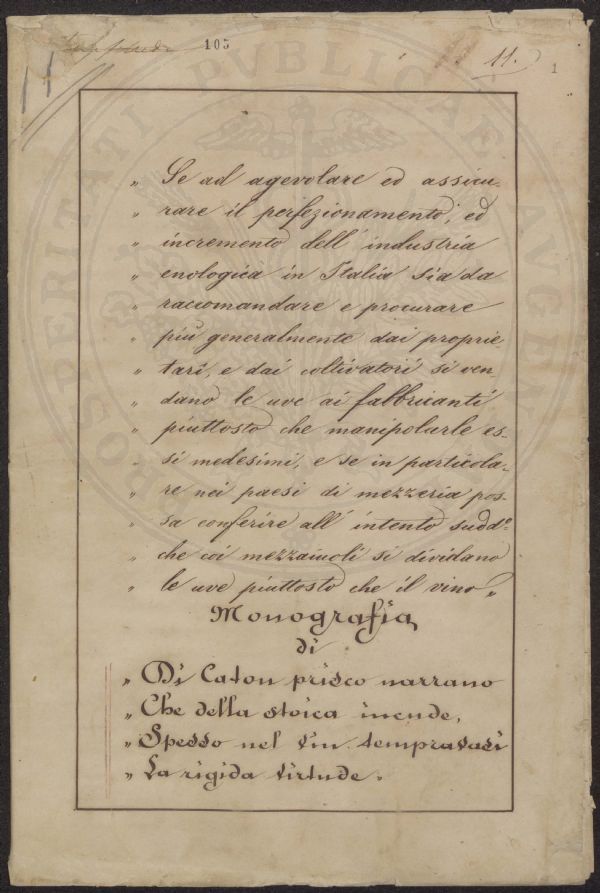 105
11.
1
PROSPERITATI PVBLICAE AVGEN
„ Se ad agevolare ed assicu-
„ rare il perfezionamento, ed
„ incremento dell' industria
„ enologica in Italia sia da
„ raccomandare e procurare
„ più generalmente dai proprie-
„ tari, e dai coltivatori si ven
„ dano le uve ai fabbricanti
„ piuttosto che manipolarle es-
„ si medesimi, e se in particola-
„ re nei paesi di mezzeria pos-
„ sa conferire all' intento sudd.º
„ che coi mezzaiuoli si dividano
„ le uve piuttosto che il vino „
Monografia
di
„ Di Caton prisco narrano
„ Che della stoica incude,
„ Spesso nel vin tempravasi
„ La rigida virtude.